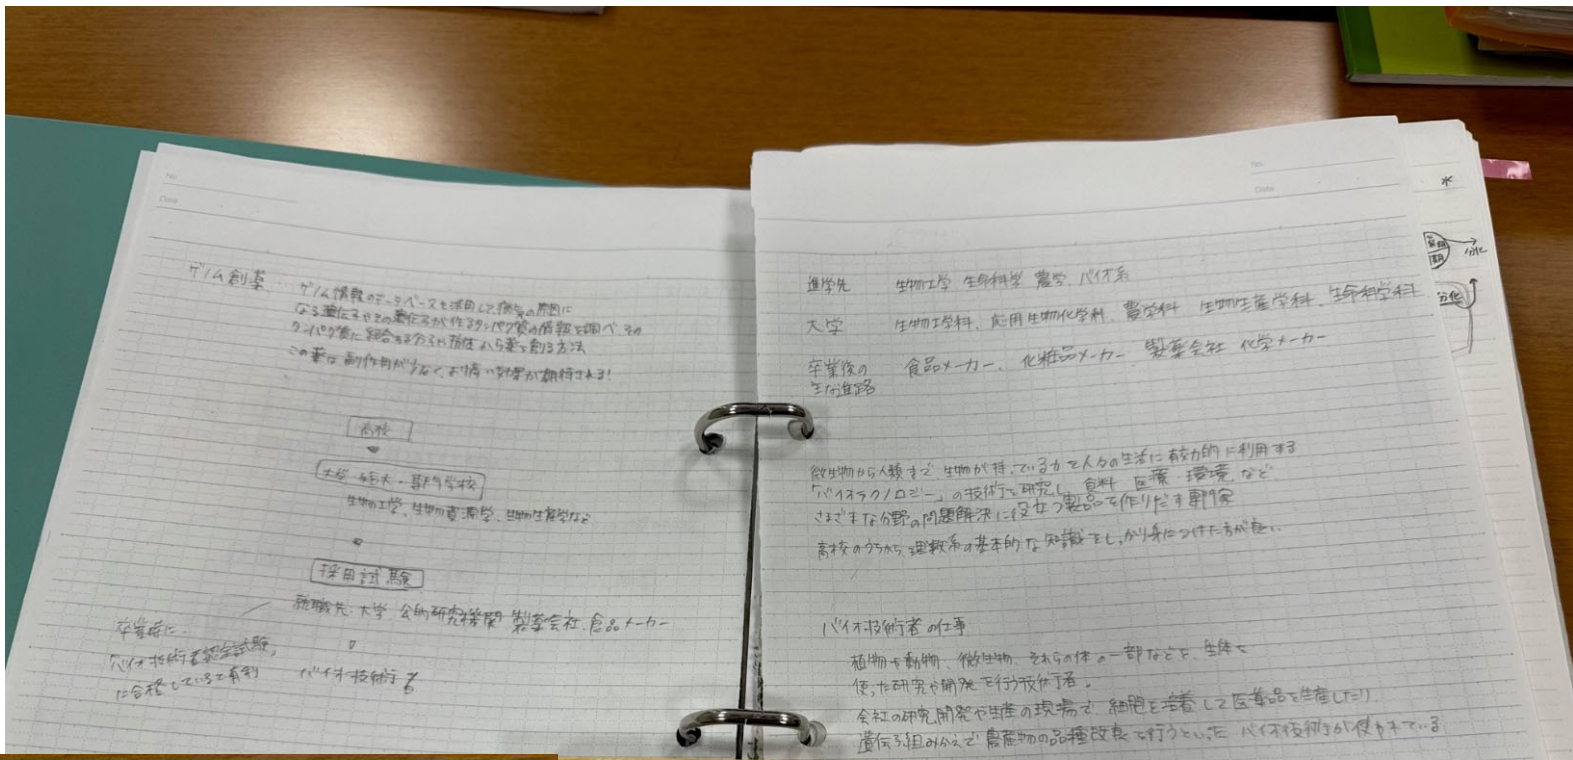 No.
Date
ゲノム創薬
ゲノム情報のデータベースを活用して病気の原因に
なる遺伝子やその遺伝子が作るタンパク質の情報を調べ、その
タンパク質に結合する分子や抗体から薬を創る方法
この薬は副作用が少なく、より高い効果が期待される!
高校
大学・短大・専門学校
生物工学、生物資源学、生物生産学など
採用試験
就職先:大学 公的研究機関 製薬会社、食品メーカー
卒業時に
「バイオ技術者認定試験」
に合格していると有利
バイオ技術者
No.
Date
進学先 生物工学 生命科学 農学 バイオ系
大学 生物工学科、応用生物化学科、農学科 生物生産学科、生命科学科
卒業後の 食品メーカー、化粧品メーカー 製薬会社 化学メーカー
主な進路
微生物から人類まで 生物が持っている力を人々の生活に有効的に利用する
「バイオテクノロジー」の技術を研究し、食料 医療・環境 など
さまざまな分野の問題解決に役立つ製品を作りだす専門家
高校のうちから、理数系の基本的な知識をしっかり身につけた方が良い
バイオ技術者の仕事
植物や動物、微生物、それらの体の一部などを、生体を
使った研究や開発を行う技術者。
会社の研究開発や生産の現場で、細胞を培養して医薬品を生産したり
遺伝子組みかえで農産物の品種改良を行うといった バイオ技術が使われている
水
分化
分化